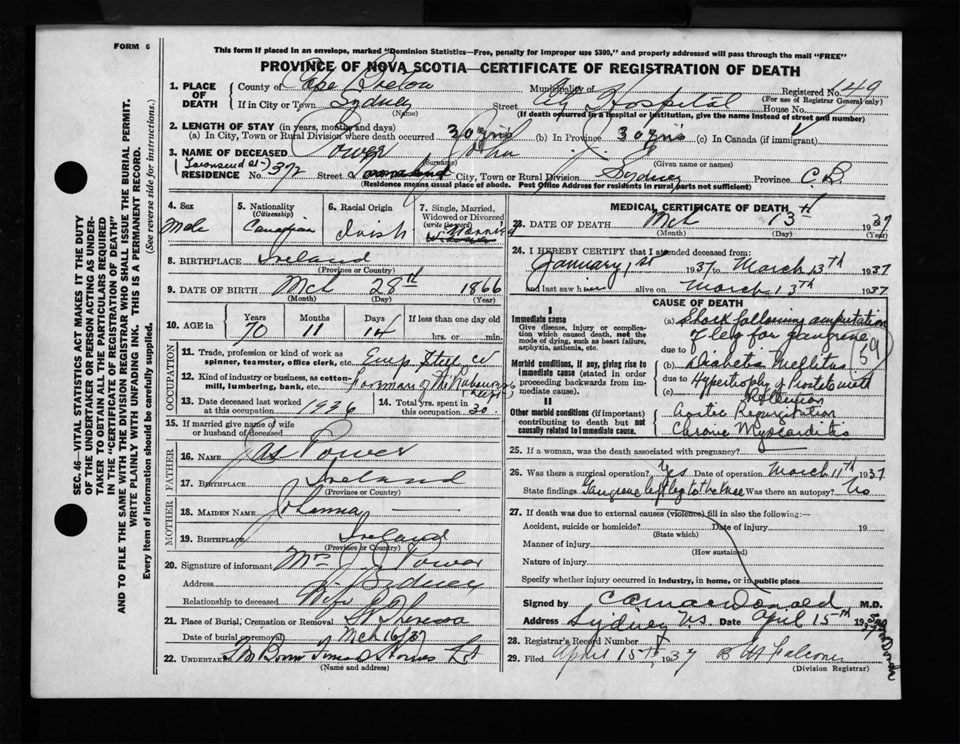 FORM 6
This form if placed in an envelope, marked "Dominion Statistics—Free, penalty for improper use $300," and properly addressed will pass through the mail "FREE"
PROVINCE OF NOVA SCOTIA—CERTIFICATE OF REGISTRATION OF DEATH
SEC. 46—VITAL STATISTICS ACT MAKES IT THE DUTY
OF THE UNDERTAKER OR PERSON ACTING AS UNDER-
TAKER TO OBTAIN ALL THE PARTICULARS REQUIRED
IN THE "CERTIFICATE OF REGISTRATION OF DEATH"
AND TO FILE THE SAME WITH THE DIVISION REGISTRAR WHO SHALL ISSUE THE BURIAL PERMIT.
WRITE PLAINLY WITH UNFADING INK. THIS IS A PERMANENT RECORD.
Every item of information should be carefully supplied. (See reverse side for instructions.)
1. PLACE OF DEATH County of Cape Breton Municipality of Registered No. 149
(For use of Registrar General only)
If in City or Town Sydney Street City Hospital House No.
(Name) (If death occurred in a hospital or institution, give the name instead of street and number)
2. LENGTH OF STAY (in years, months and days)
(a) In City, Town or Rural Division where death occurred 30 yrs (b) In Province 30 yrs (c) In Canada (if immigrant)
3. NAME OF DECEASED Power John J.
(Surname) (Given name or names)
Townsend st
RESIDENCE No. 372 Street City, Town or Rural Division Sydney Province C.B.
(Residence means usual place of abode. Post Office Address for residents in rural parts not sufficient)
4. Sex Male
5. Nationality (Citizenship) Canadian
6. Racial Origin Irish
7. Single, Married, Widowed or Divorced (write the word) Married
8. BIRTHPLACE Ireland
(Province or Country)
9. DATE OF BIRTH Mch 28th 1866
(Month) (Day) (Year)
10. AGE in Years 70 Months 11 Days 14 If less than one day old
hrs. or min.
OCCUPATION
11. Trade, profession or kind of work as spinner, teamster, office clerk, etc.
12. Kind of industry or business, as cotton-mill, lumbering, bank, etc. Foreman of the
13. Date deceased last worked at this occupation 1936
14. Total yrs. spent in this occupation 30
15. If married give name of wife or husband of deceased
FATHER
16. NAME Jas Power
17. BIRTHPLACE Ireland
(Province or Country)
MOTHER
18. MAIDEN NAME Johanna —
19. BIRTHPLACE Ireland
(Province or Country)
20. Signature of informant Mrs J. J. Power
Address Sydney
Relationship to deceased Wife
21. Place of Burial, Cremation or Removal St Theresa
Date of burial or removal Mch 16/37
22. UNDERTAKER
(Name and address)
MEDICAL CERTIFICATE OF DEATH
23. DATE OF DEATH Mch 13th 1937
(Month) (Day) (Year)
24. I HEREBY CERTIFY that I attended deceased from:
January 1st 1937 to March 13th 1937
and last saw him alive on March 13th 1937
CAUSE OF DEATH
I
Immediate cause
Give disease, injury or complication which caused death, not the mode of dying, such as heart failure, asphyxia, asthenia, etc.
(a) Shock following amputation
of leg for gangrene
due to
59
Morbid conditions, if any, giving rise to immediate cause (stated in order proceeding backwards from immediate cause).
(b) Diabetis Mellitus
due to
(c) Hypertrophy of Prostate with
Retention
II
Other morbid conditions (if important) contributing to death but not causally related to immediate cause.
Aortic Regurgitation
Chronic Myocarditis
25. If a woman, was the death associated with pregnancy?
26. Was there a surgical operation? Yes Date of operation March 11th 1937
State findings Gangrene left leg to the knee Was there an autopsy? No
27. If death was due to external causes (violence) fill in also the following:—
Accident, suicide or homicide? Date of injury 19
(State which)
Manner of injury
(How sustained)
Nature of injury
Specify whether injury occurred in industry, in home, or in public place
Signed by MacDonald M.D.
Address Sydney N.S. Date April 15th 1937
28. Registrar's Record Number
29. Filed April 15th, 1937 Falconer
(Division Registrar)